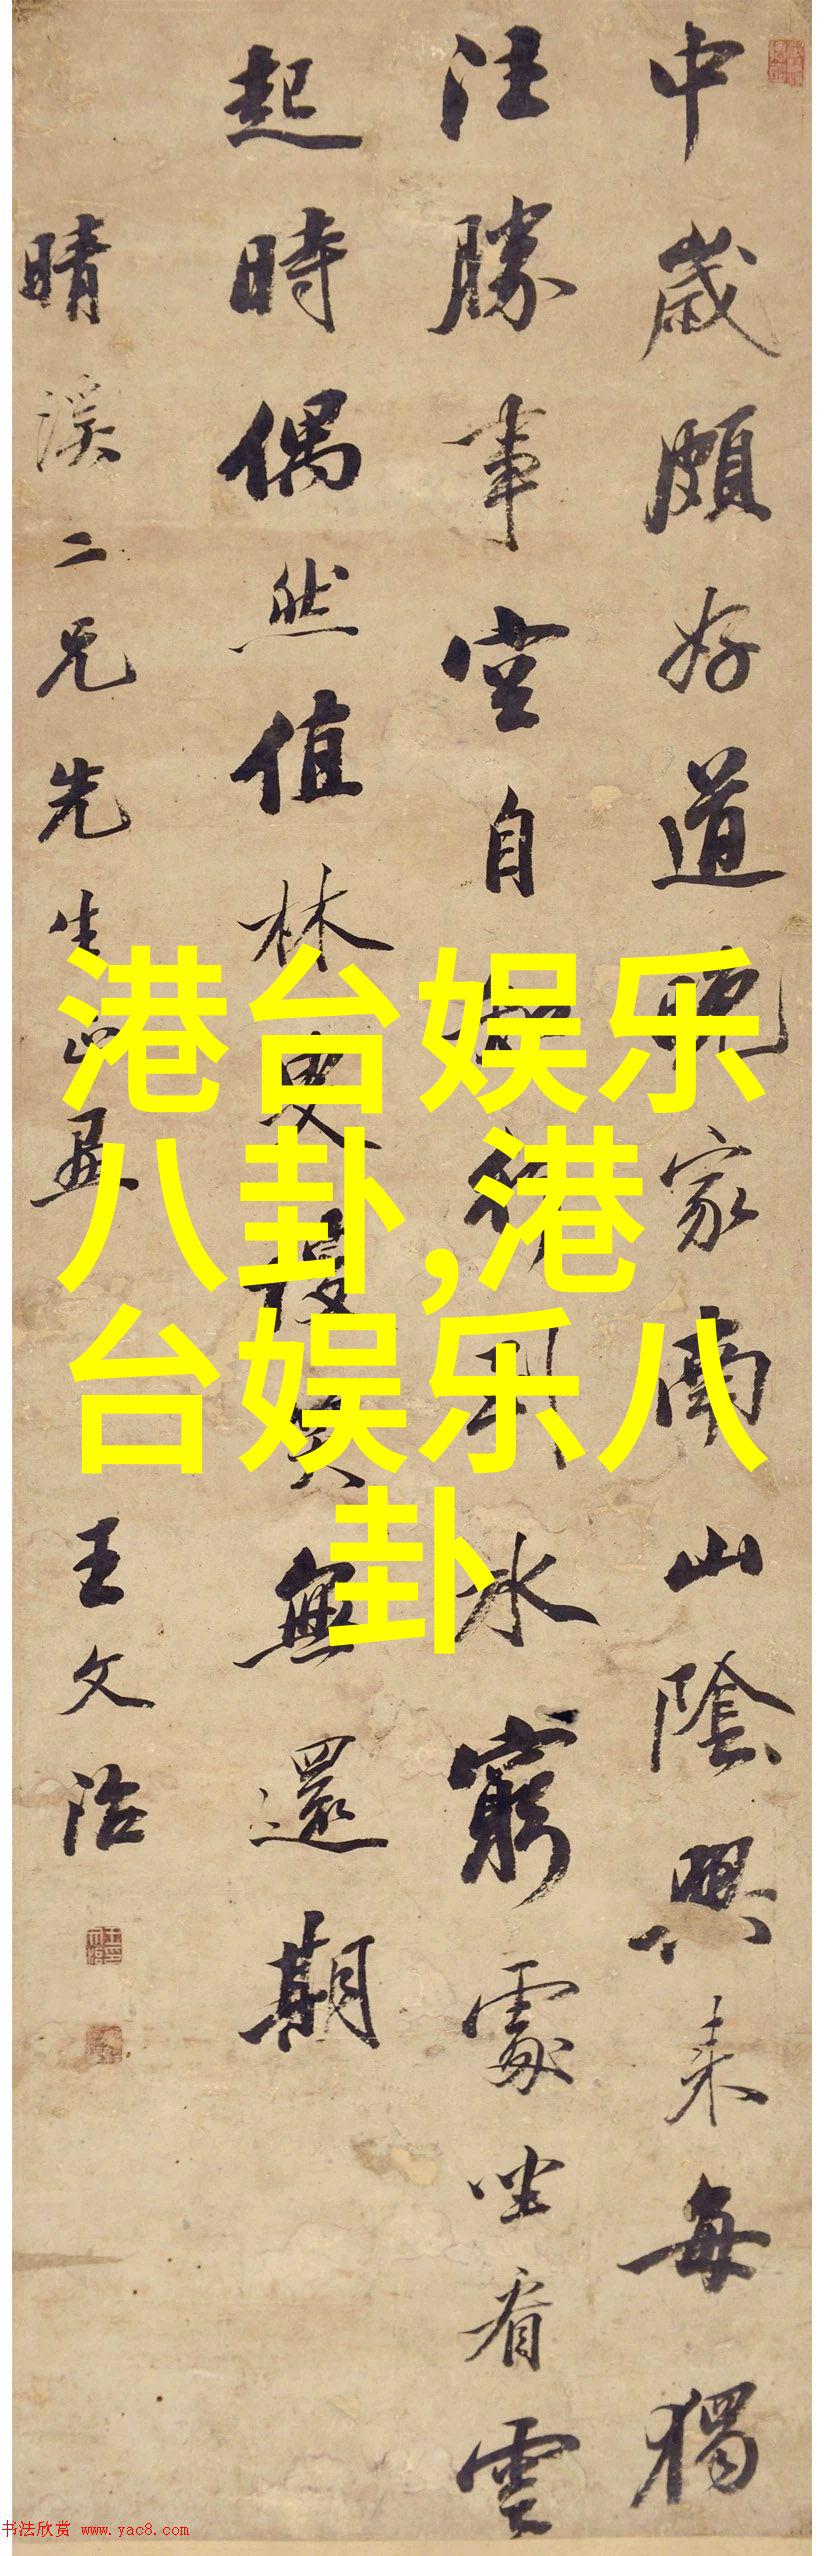 中歲頗好道晚家南山陰興来每獨
往勝事空自知行到水窮處坐看雲
起時偶然值林叟談笑無還期
晴溪二兄先生正
王文治
港台娱乐
八卦,港
台娱乐八
卦
书法欣赏 www.yac8.com